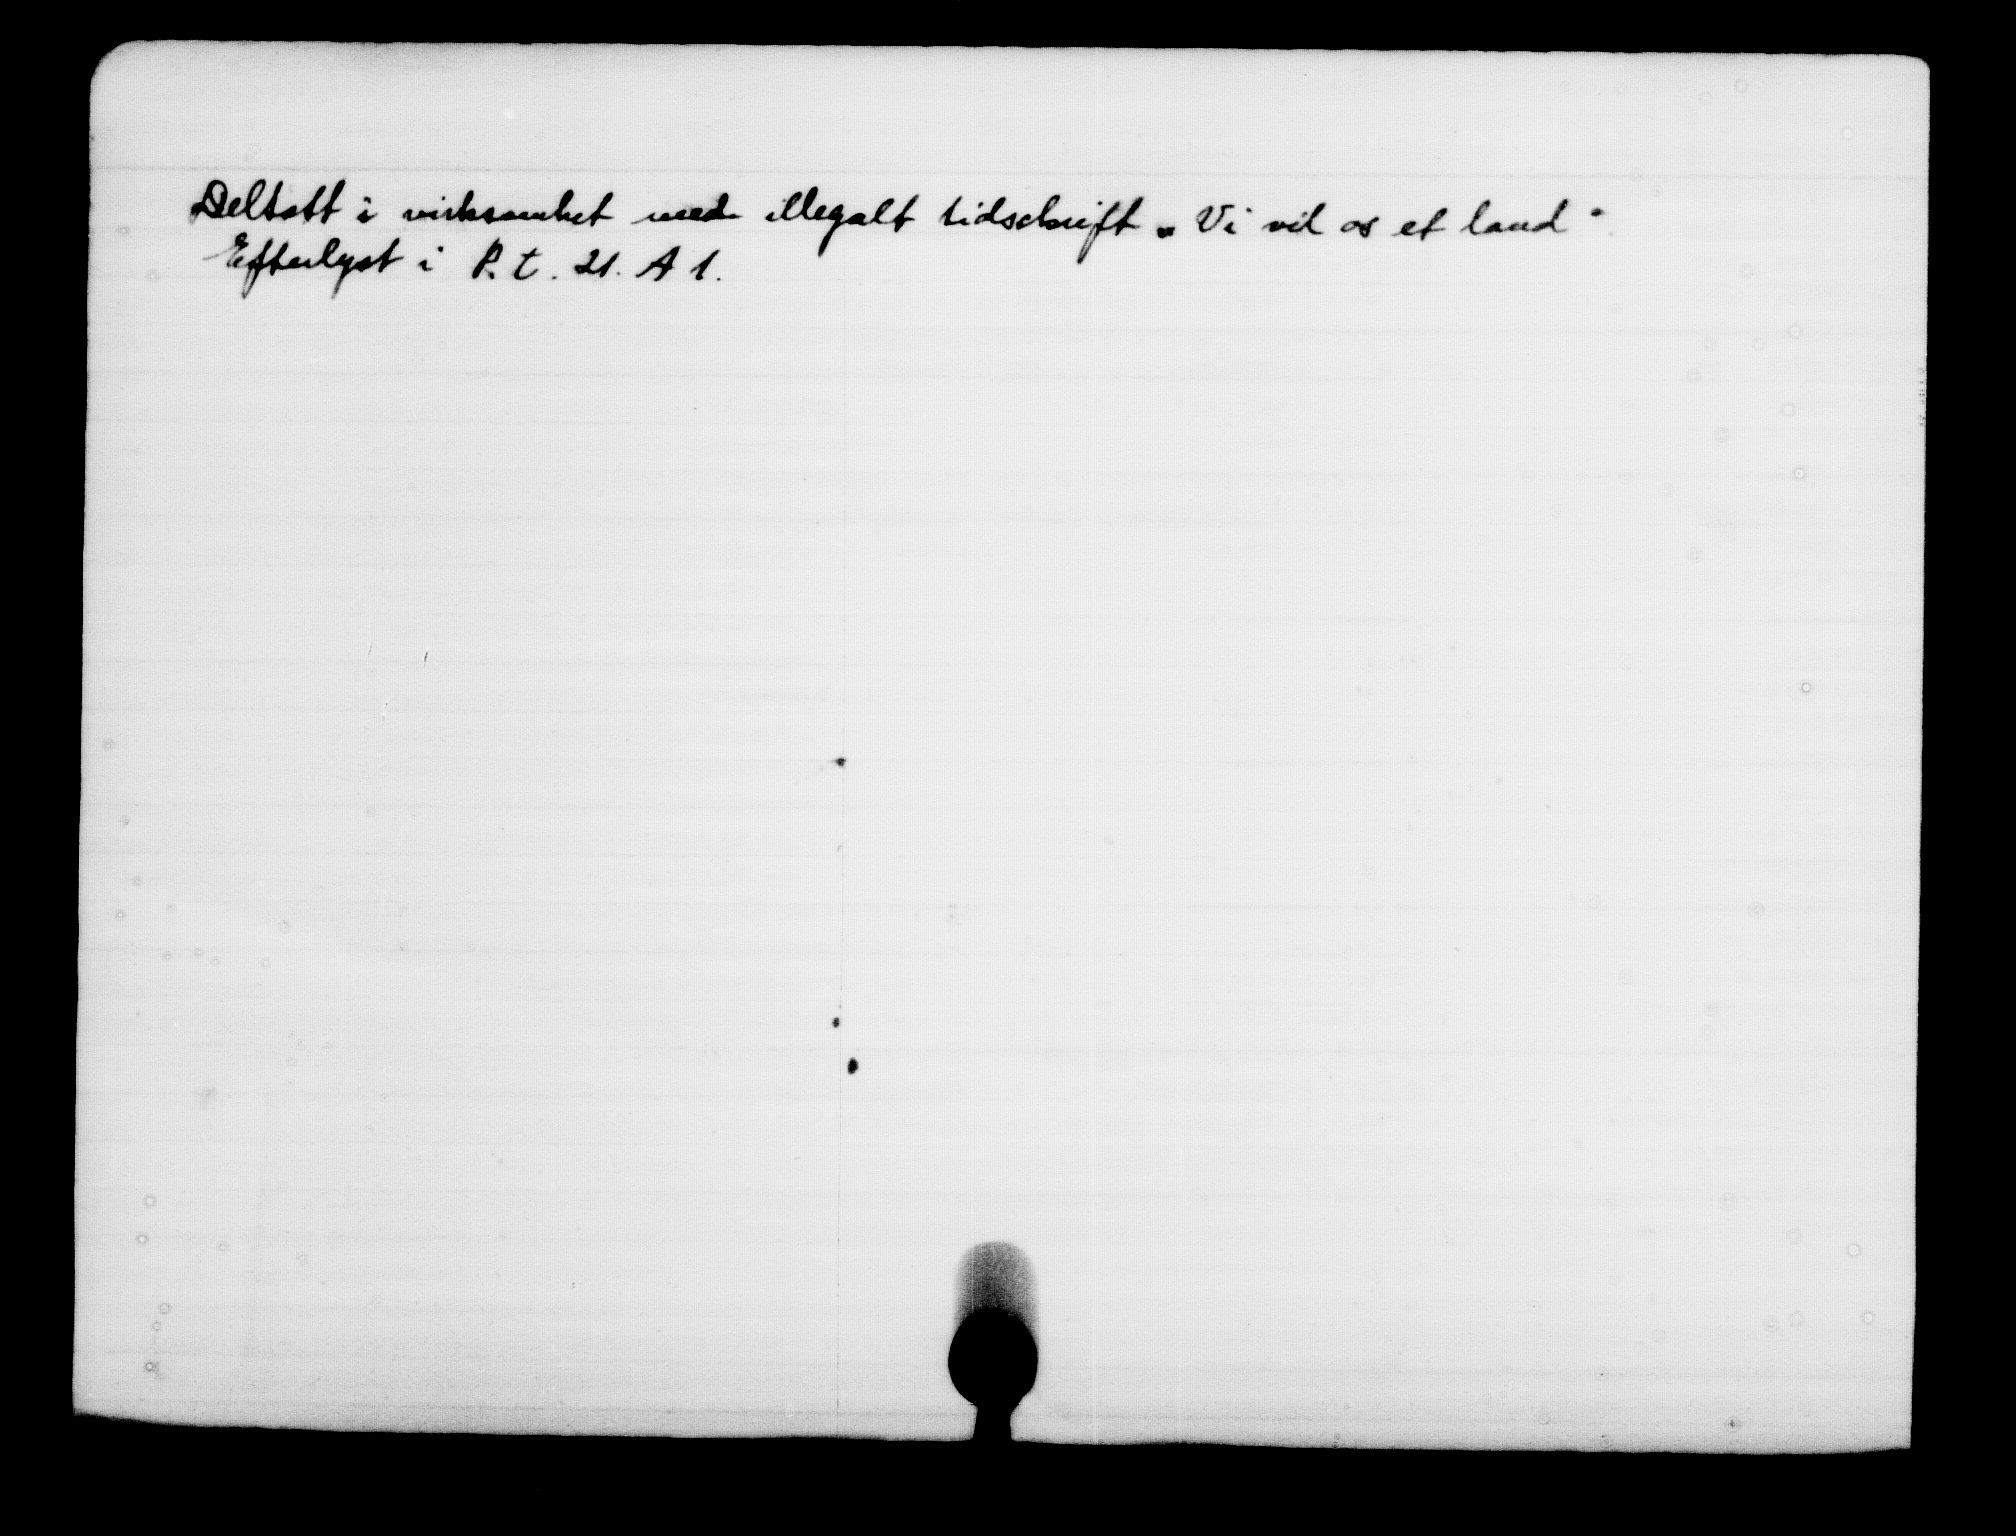 Deltatt i virksomhet med illegalt tidsskrift „Vi vil os et land"
Efterlyst i P.t. 21. A 1.